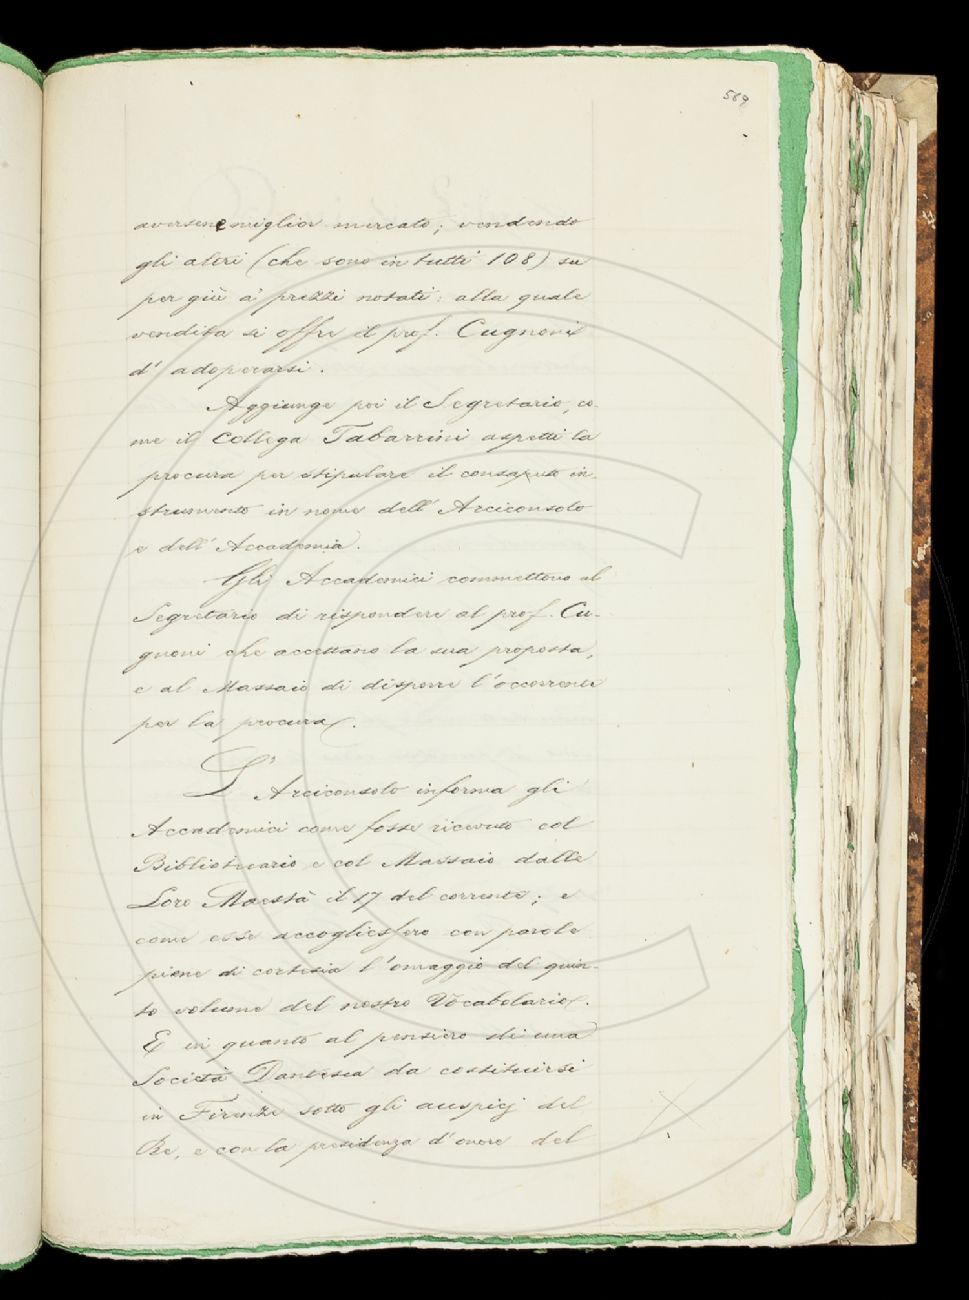 569
aversene miglior mercato; vendendo
gli altri (che sono in tutti 108) su
per giù a' prezzi notati: alla quale
vendita si offre il prof. Cugnoni
d'adoperarsi.
Aggiunge poi il Segretario, co-
me il Collega Tabarrini aspetti la
procura per stipulare il consaputo in-
strumento in nome dell'Arciconsolo
e dell'Accademia.
Gli Accademici commettono al
Segretario di rispondere al prof. Cu-
gnoni che accettano la sua proposta,
e al Massaio di disporre l'occorrente
per la procura.
L'Arciconsolo informa gli
Accademici come fosse ricevuto col
Bibliotecario e col Massaio dalle
Loro Maestà il 17 del corrente; e
come esse accogliessero con parole
piene di cortesia l'omaggio del quin-
to volume del nostro Vocabolario.
E in quanto al pensiero di una
Società Dantesca da costituirsi
in Firenze sotto gli auspicj del
Re, e con la presidenza d'onore del